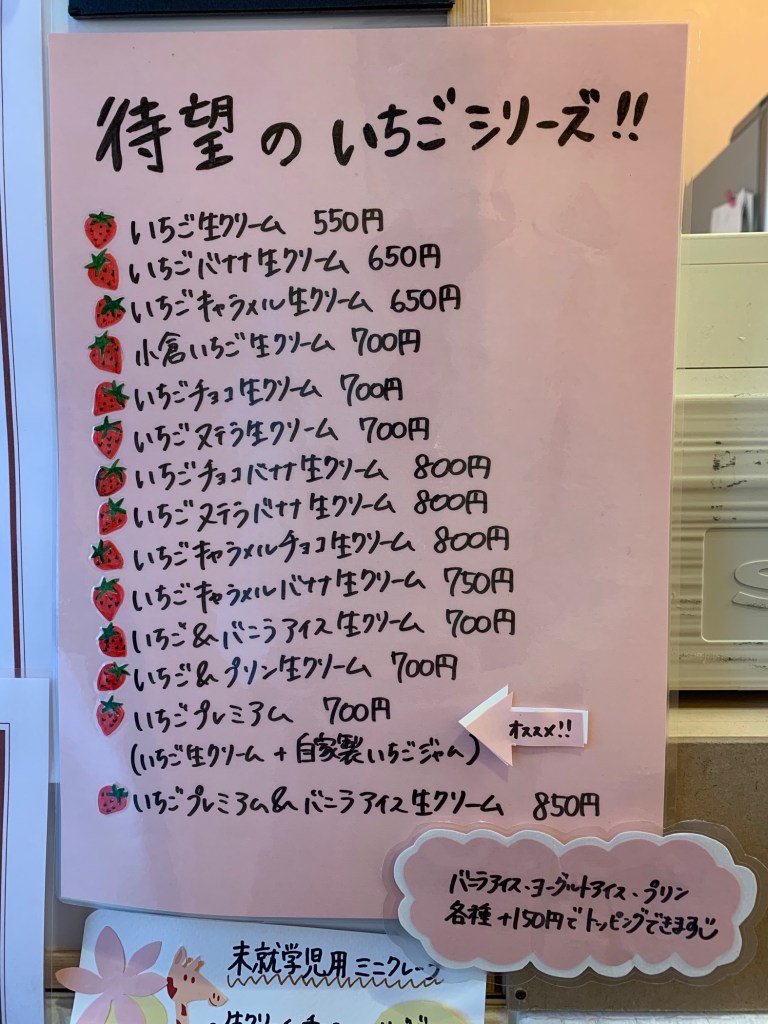 待望のいちごシリーズ!!
いちご生クリーム 550円
いちごバナナ生クリーム 650円
いちごキャラメル生クリーム 650円
小倉いちご生クリーム 700円
いちごチョコ生クリーム 700円
いちごヌテラ生クリーム 700円
いちごチョコバナナ生クリーム 800円
いちごヌテラバナナ生クリーム 800円
いちごキャラメルチョコ生クリーム 800円
いちごキャラメルバナナ生クリーム 750円
いちご&バニラアイス生クリーム 700円
いちご&プリン生クリーム 700円
いちごプレミアム 700円
(いちご生クリーム+自家製いちごジャム)
オススメ!!
いちごプレミアム&バニラアイス生クリーム 850円
バニラアイス・ヨーグルトアイス・プリン
各種+150円でトッピングできます
未就学児用ミニクレープ